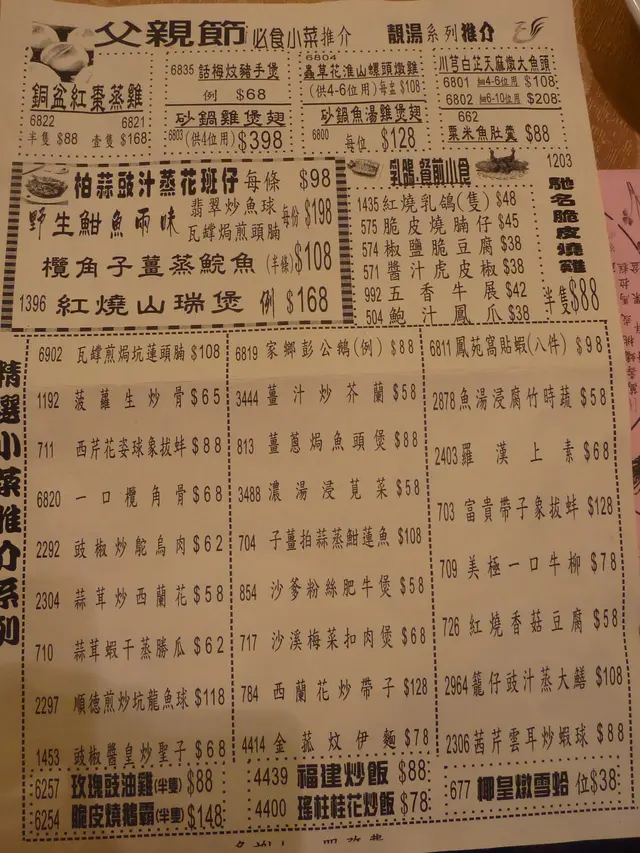 父親節 必食小菜推介 靚湯系列推介
銅盆紅棗蒸雞
6822 6821
半隻$88 壹隻$168
6835 話梅炆豬手煲
例 $68
砂鍋雞煲翅
6803(供4位用)$398
6804
蟲草花淮山螺頭燉雞
(供4-6位用)每盅$108
砂鍋魚湯雞煲翅
6800 每位 $128
川芎白芷天麻燉大魚頭
6801 細4-6位用 $108
6802 細6-10位用 $208
662
粟米魚肚羹 $88
柏蒜豉汁蒸花班仔 每條 $98
野生鮒魚兩味 翡翠炒魚球 瓦罉焗煎頭腩 每份$198
欖角子薑蒸鯇魚(半條)$108
1396 紅燒山瑞煲 例 $168
乳鴿、餐前小食
1435 紅燒乳鴿(隻)$48
575 脆皮燒腩仔$45
574 椒鹽脆豆腐$38
571 醬汁虎皮椒$38
992 五香牛展$42
504 鮑汁鳳爪$38
1203
馳名脆皮燒雞
半隻$88
精選小菜推介系列
6902 瓦罉煎焗坑蓮頭腩 $108
1192 菠蘿生炒骨 $65
711 西芹花姿球象拔蚌 $88
6820 一口欖角骨 $68
2292 豉椒炒鴕鳥肉 $62
2304 蒜茸炒西蘭花 $58
710 蒜茸蝦干蒸勝瓜 $62
2297 順德煎炒坑龍魚球 $118
1453 豉椒醬皇炒聖子 $68
6819 家鄉彭公鵝(例) $88
3444 薑汁炒芥蘭 $58
813 薑蔥焗魚頭煲 $88
3488 濃湯浸莧菜 $58
704 子薑柏蒜蒸鮒蓮魚 $108
854 沙爹粉絲肥牛煲 $58
717 沙溪梅菜扣肉煲 $68
784 西蘭花炒帶子 $128
4414 金菰炆伊麵 $78
6811 鳳苑窩貼蝦(八件) $98
2878 魚湯浸腐竹時蔬 $58
2403 羅漢上素 $68
703 富貴帶子象拔蚌 $128
709 美極一口牛柳 $78
726 紅燒香菇豆腐 $58
2964 籠仔豉汁蒸大鱔 $108
2306 茜芹雲耳炒蝦球 $88
6257 玫瑰豉油雞(半隻) $88
6254 脆皮燒鵝霸(半隻) $148
4439 福建炒飯 $88
4400 瑤柱桂花炒飯 $78
677 椰皇燉雪蛤 位$38